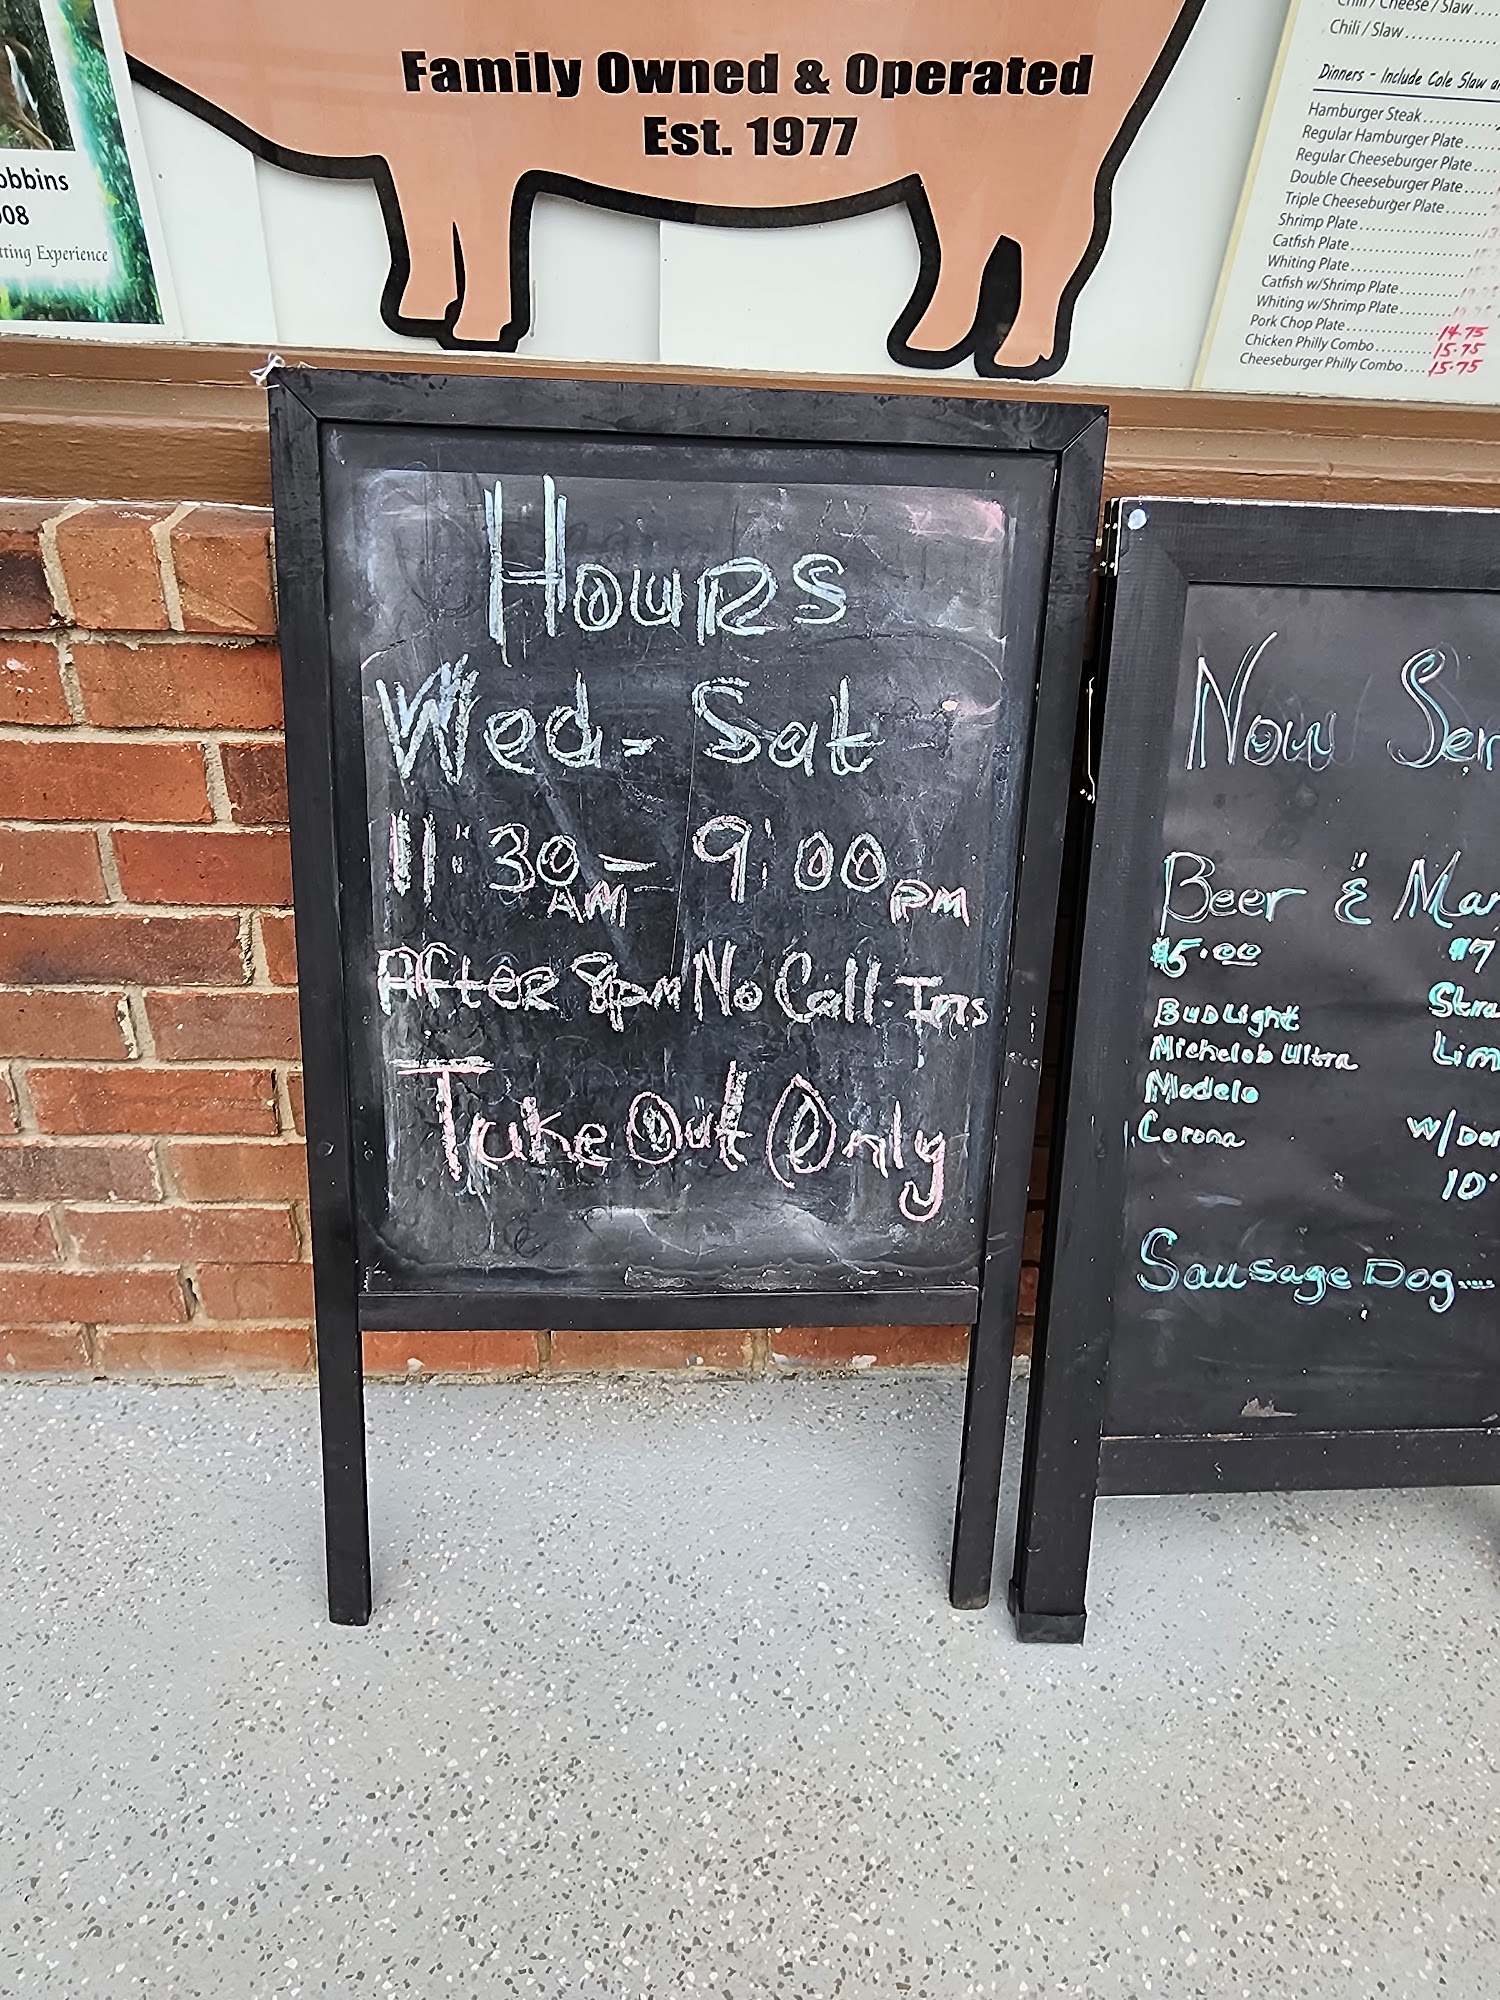 Family Owned & Operated
Est. 1977
obbins
008
tting Experience
Chili / Cheese / Slaw
Chili / Slaw
Dinners - Include Cole Slaw
Hamburger Steak
Regular Hamburger Plate
Regular Cheeseburger Plate
Double Cheeseburger Plate
Triple Cheeseburger Plate
Shrimp Plate
Catfish Plate
Whiting Plate
Catfish w/Shrimp Plate
Whiting w/Shrimp Plate
Pork Chop Plate 14.75
Chicken Philly Combo 15.75
Cheeseburger Philly Combo 15.75
Hours
Wed - Sat
11:30 AM - 9:00 PM
After 8pm No Call-Ins
Take Out Only
Now Ser
Beer & Mar
$5.00 $7
Bud Light Stra
Michelob Ultra Lim
Modelo
Corona w/Don
10.
Sausage Dog.....